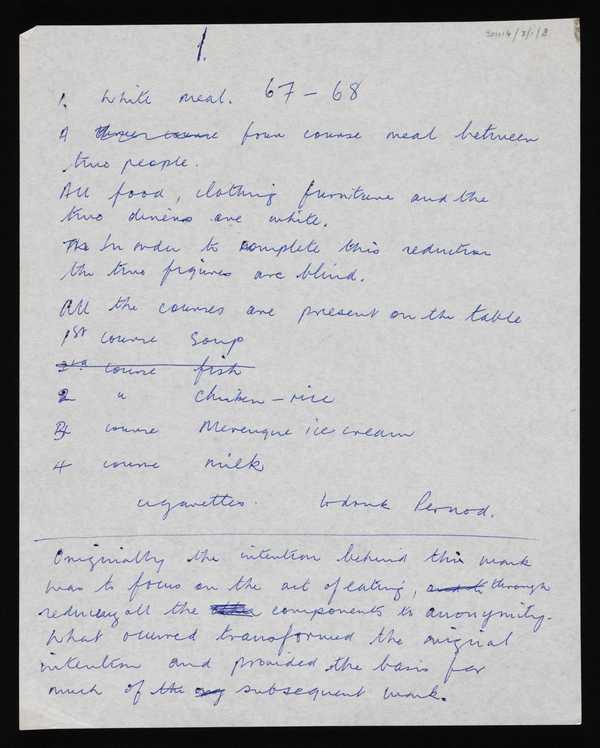 1.
1. White meal. 67 - 68
A three course four course meal between
two people.
All food, clothing furniture and the
two diners are white.
The In order to complete this reduction
the two figures are blind.
All the courses are present on the table
1st course Soup
2nd course fish
2 " Chicken - rice
3 course Merengue ice cream
4 course milk
cigarettes. to drink Pernod.
Originally the intention behind this work
was to focus on the act of eating, through
reducing all the components to anonymity.
What occured transformed the original
intention and provided the basis for
much of the my subsequent work.